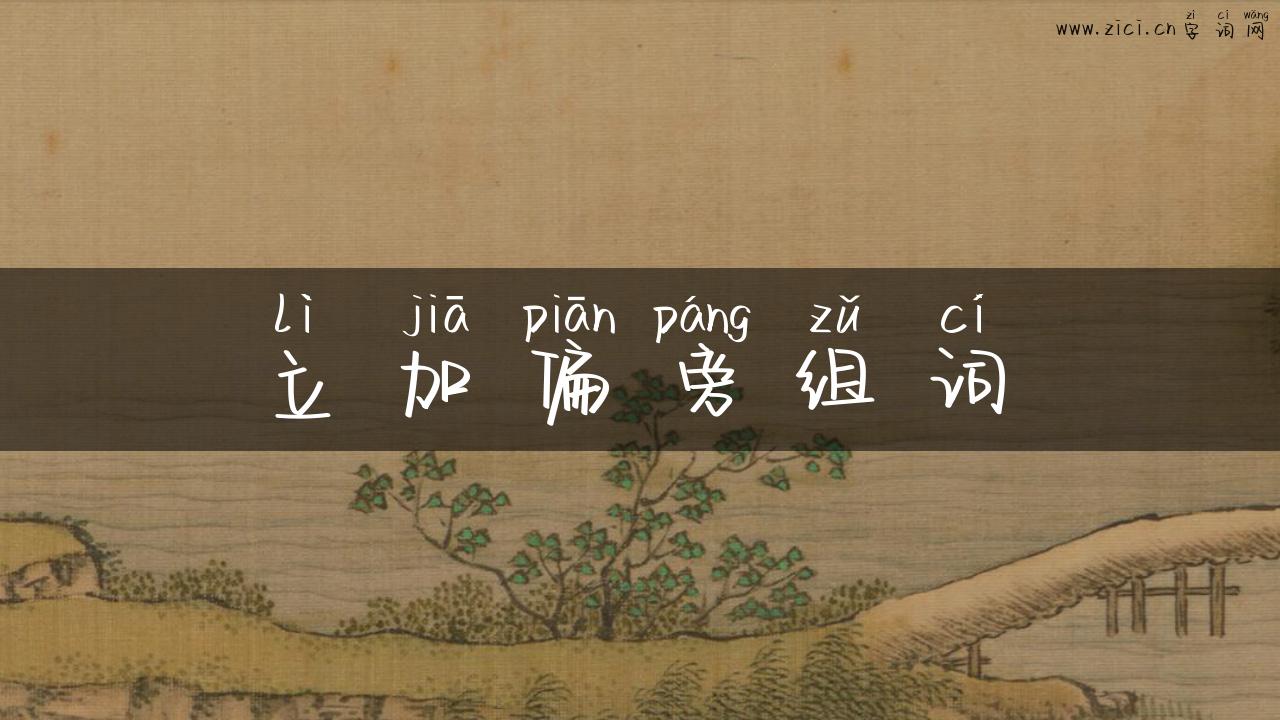 zì cí wǎng
www.zici.cn 字词网
lì jiā piān páng zǔ cí
立加偏旁组词